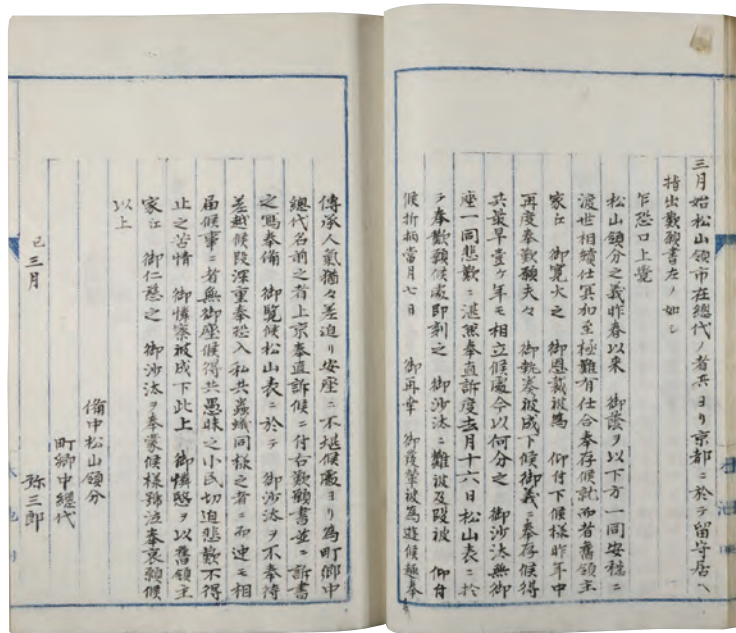 三月始松山領市在總代ノ者共ヨリ京都ニ於テ留守居ヘ
指出歎願書左ノ如シ
乍恐口上覺
松山領分之義昨春以来　御蔭ヲ以下方一同安穏ニ
渡世相續仕冥和至極難有仕合奉存候就而者舊領主
家江　御寛大之　御恩裁被為　仰付下候様昨年中
再度奉歎願夫々　御執奏被成下候御義ニ奉存候得
共最早壹ケ年モ相立候處今以何分之　御沙汰無御
座一同悲歎ニ湛無奉直訴度去月十六日松山表ニ於
テ奉歎願候處即刻之　御沙汰ニ難被及段被　仰付
候折柄當月七日　御再幸　御鳳輦被為遊候趣奉
傳承人氣猶々差迫リ安座ニ不堪候處ヨリ為町郷中
總代名前之者上京奉直訴候ニ付右歎願書並ニ訴書
之寫奉備　御覧候松山表ニ於テ　御沙汰ヲ不奉待
差越候段深重奉恐入私共蟲蟻同様之者ニ而速モ相
届候事ニ者無御座候得共愚昧之小民切迫悲歎不得
止之苦情　御憐察被成下此上　御憐愍ヲ以舊領主
家江　御仁慈之　御沙汰ヲ奉蒙候様號泣奉哀願候
以上
備中松山領分
町郷中總代
巳三月　弥三郎